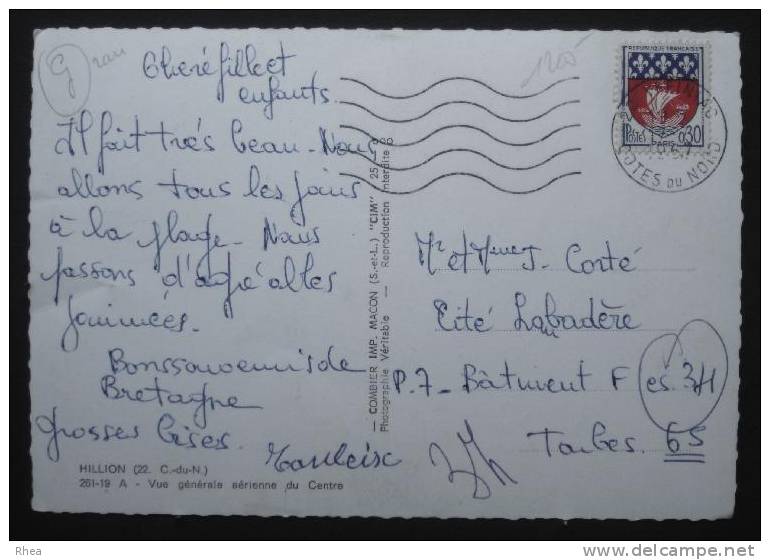 Cheré fille et
enfants.
Il fait très beau. Nous
allons tous les jours
à la plage. Nous
passons d'agréables
journées.
Bons souvenirs de
Bretagne
Grosses bises.
HILLION (22. C.-du-N.)
261-19 A - Vue générale aérienne du Centre
— COMBIER IMP. MACON (S.-et-L.) "CIM"
Photographie Véritable — Reproduction Interdite
REPUBLIQUE FRANÇAISE
POSTES 0,30
PARIS
COTES DU NORD
Mr et Mme J. Corté
Cité Laubadère
P.7 - Bâtiment F es. 34
Tarbes. 65
Rhea
www.delcampe.net